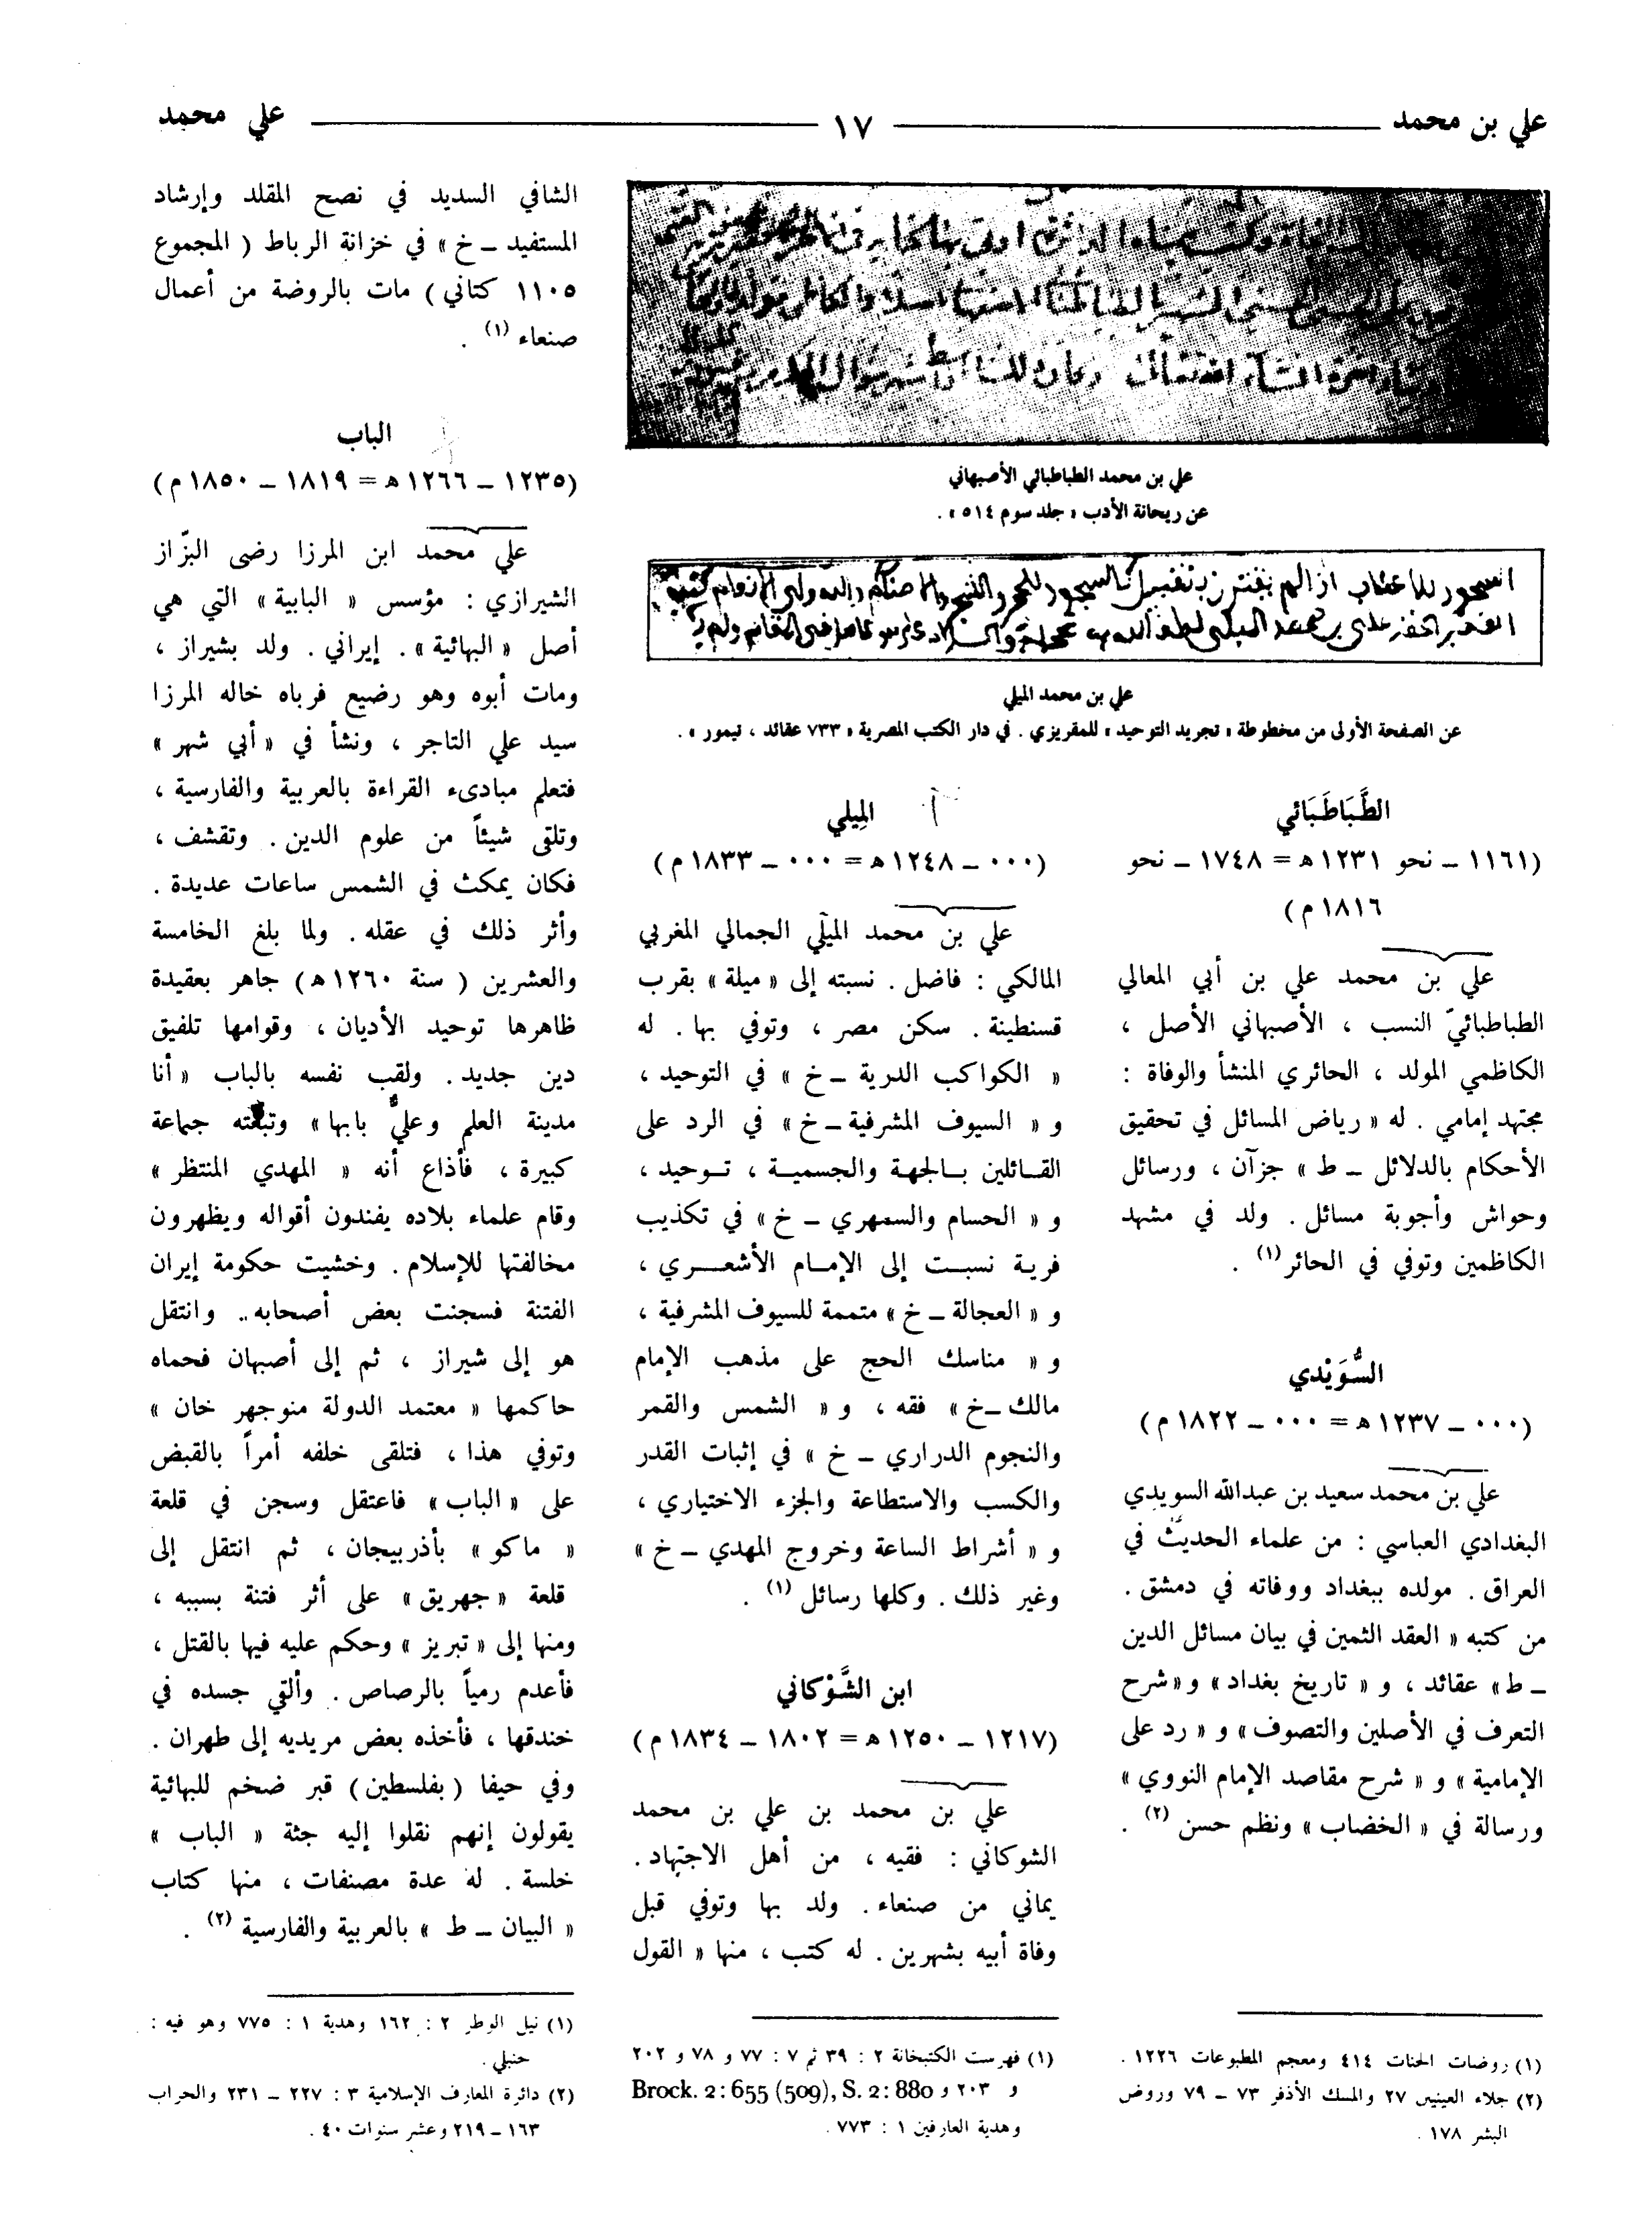 علي بن محمد ١٧ علي محمد
علي بن محمد الطباطبائي الأصبهاني
عن ريحانة الأدب « جلد سوم ٥١٤ » .
علي بن محمد الميلي
عن الصفحة الأولى من مخطوطة « تجريد التوحيد » للمقريزي . في دار الكتب المصرية « ٧٣٣ عقائد ، تيمور » .
الطَّبَاطَبَائي
(١١٦١ – نحو ١٢٣١ ه = ١٧٤٨ – نحو
١٨١٦ م)
علي بن محمد علي بن أبي المعالي
الطباطبائيّ النسب ، الأصبهاني الأصل ،
الكاظمي المولد ، الحائري المنشأ والوفاة :
مجتهد إمامي . له « رياض المسائل في تحقيق
الأحكام بالدلائل – ط » جزآن ، ورسائل
وحواش وأجوبة مسائل . ولد في مشهد
الكاظمين وتوفي في الحائر (١) .
السُّوَيْدي
(٠٠٠ – ١٢٣٧ ه = ٠٠٠ – ١٨٢٢ م)
علي بن محمد سعيد بن عبدالله السويدي
البغدادي العباسي : من علماء الحديث في
العراق . مولده ببغداد ووفاته في دمشق .
من كتبه « العقد الثمين في بيان مسائل الدين
– ط » عقائد ، و « تاريخ بغداد » و « شرح
التعرف في الأصلين والتصوف » و « رد على
الإمامية » و « شرح مقاصد الإمام النووي »
ورسالة في « الخضاب » ونظم حسن (٢) .
(١) روضات الجنات ٤١٤ ومعجم المطبوعات ١٢٢٦ .
(٢) جلاء العينين ٢٧ والمسك الأذفر ٧٣ – ٧٩ وروض
البشر ١٧٨ .
المِيلي
(٠٠٠ – ١٢٤٨ ه = ٠٠٠ – ١٨٣٣ م)
علي بن محمد الميلي الجمالي المغربي
المالكي : فاضل . نسبته إلى « ميلة » بقرب
قسنطينة . سكن مصر ، وتوفي بها . له
« الكواكب الدرية – خ » في التوحيد ،
و « السيوف المشرفية – خ » في الرد على
القائلين بالجهة والجسمية ، توحيد ،
و « الحسام والسمهري – خ » في تكذيب
فرية نسبت إلى الإمام الأشعري ،
و « العجالة – خ » متممة للسيوف المشرفية ،
و « مناسك الحج على مذهب الإمام
مالك – خ » فقه ، و « الشمس والقمر
والنجوم الدراري – خ » في إثبات القدر
والكسب والاستطاعة والجزء الاختياري ،
و « أشراط الساعة وخروج المهدي – خ »
وغير ذلك . وكلها رسائل (١) .
ابن الشَّوْكاني
(١٢١٧ – ١٢٥٠ ه = ١٨٠٢ – ١٨٣٤ م)
علي بن محمد بن علي بن محمد
الشوكاني : فقيه ، من أهل الاجتهاد .
يماني من صنعاء . ولد بها وتوفي قبل
وفاة أبيه بشهرين . له كتب ، منها « القول
(١) فهرست الكتبخانة ٢ : ٣٩ ثم ٧ : ٧٧ و ٧٨ و ٢٠٢
و ٢٠٣ و Brock. 2:655 (509), S. 2:880
وهدية العارفين ١ : ٧٧٣ .
الشافي السديد في نصح المقلد وإرشاد
المستفيد – خ » في خزانة الرباط ( المجموع
١١٠٥ كتاني ) مات بالروضة من أعمال
صنعاء (١) .
الباب
(١٢٣٥ – ١٢٦٦ ه = ١٨١٩ – ١٨٥٠ م)
علي محمد ابن المرزا رضى البزّاز
الشيرازي : مؤسس « البابية » التي هي
أصل « البهائية » . إيراني . ولد بشيراز ،
ومات أبوه وهو رضيع فرباه خاله المرزا
سيد علي التاجر ، ونشأ في « أبي شهر »
فتعلم مبادىء القراءة بالعربية والفارسية ،
وتلقى شيئاً من علوم الدين . وتقشف ،
فكان يمكث في الشمس ساعات عديدة .
وأثر ذلك في عقله . ولما بلغ الخامسة
والعشرين ( سنة ١٢٦٠ ه ) جاهر بعقيدة
ظاهرها توحيد الأديان ، وقوامها تلفيق
دين جديد . ولقب نفسه بالباب « أنا
مدينة العلم وعليٌّ بابها » وتبعته جماعة
كبيرة ، فأذاع أنه « المهدي المنتظر »
وقام علماء بلاده يفندون أقواله ويظهرون
مخالفتها للإسلام . وخشيت حكومة إيران
الفتنة فسجنت بعض أصحابه .. وانتقل
هو إلى شيراز ، ثم إلى أصبهان فحماه
حاكمها « معتمد الدولة منوجهر خان »
وتوفي هذا ، فتلقى خلفه أمراً بالقبض
على « الباب » فاعتقل وسجن في قلعة
« ماكو » بأذربيجان ، ثم انتقل إلى
قلعة « جهريق » على أثر فتنة بسببه ،
ومنها إلى « تبريز » وحكم عليه فيها بالقتل ،
فأعدم رمياً بالرصاص . وألقي جسده في
خندقها ، فأخذه بعض مريديه إلى طهران .
وفي حيفا ( بفلسطين ) قبر ضخم للبهائية
يقولون إنهم نقلوا إليه جثة « الباب »
خلسة . له عدة مصنفات ، منها كتاب
« البيان – ط » بالعربية والفارسية (٢) .
(١) نيل الوطر ٢ : ١٦٢ وهدية ١ : ٧٧٥ وهو فيه :
حنبلي .
(٢) دائرة المعارف الإسلامية ٣ : ٢٢٧ – ٢٣١ والحراب
١٦٣ – ٢١٩ وعشر سنوات ٤٠ .